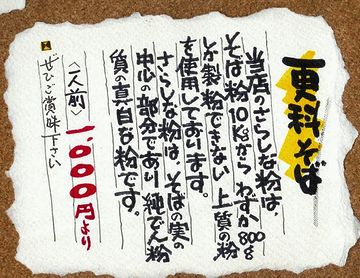 更科そば
当店のさらしな粉は、
そば粉10Kgからわずか800g
しか製粉できない上質の粉
を使用しております。
さらしな粉は、そばの実の
中心の部分であり純でん粉
質の真白な粉です。
〈一人前〉一、〇〇〇円より
ぜひご賞味下さい